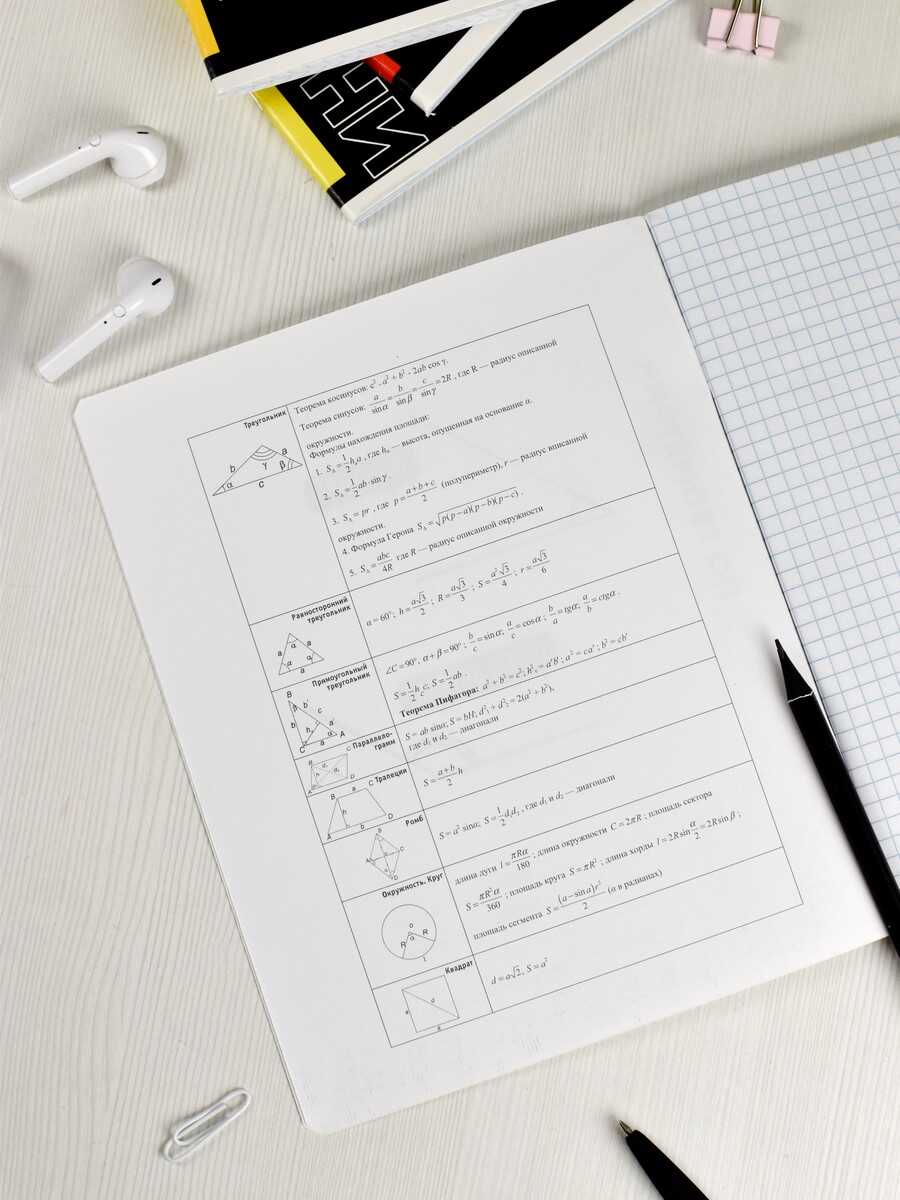 НИ
Треугольник
Теорема косинусов: c² - a² + b² - 2ab cos γ.
Теорема синусов: a/sin α = b/sin β = c/sin γ = 2R , где R — радиус описанной
окружности.
Формулы нахождения площади:
1. S_Δ = 1/2 hₐa , где hₐ — высота, опущенная на основание a.
2. S_Δ = 1/2 ab · sin γ .
3. S_Δ = pr , где p = a+b+c/2 (полупериметр), r — радиус вписанной
окружности.
4. Формула Герона S_Δ = √p(p−a)(p−b)(p−c) .
5. S_Δ = abc/4R где R — радиус описанной окружности
b γ a α β c
Равносторонний
треугольник
α = 60°; h = a√3/2 ; R = a√3/3 ; S = a²√3/4 ; r = a√3/6
Прямоугольный
треугольник
∠C = 90°, α + β = 90°; b/c = sin α; a/c = cos α; b/a = tg α; a/b = ctg α .
S = 1/2 h c, S = 1/2 ab .
Теорема Пифагора: a² + b² = c²; h²c = a'b' ; a² = ca' ; b² = cb'
Параллело-
грамм
S = ab sin α; S = bH; d²₁ + d²₂ = 2(a² + b²),
где d₁ и d₂ — диагонали
Трапеция
S = a+b/2 h
Ромб
S = a² sin α; S = 1/2 d₁d₂ , где d₁ и d₂ — диагонали
Окружность. Круг
длина дуги l = πRα/180 ; длина окружности C = 2πR ; площадь сектора
S = πR²α/360 ; площадь круга S = πR² ; длина хорды l = 2R sin α/2 = 2R sin β ;
площадь сегмента S = (α − sin α)r²/2 (α в радианах)
Квадрат
d = a√2, S = a²